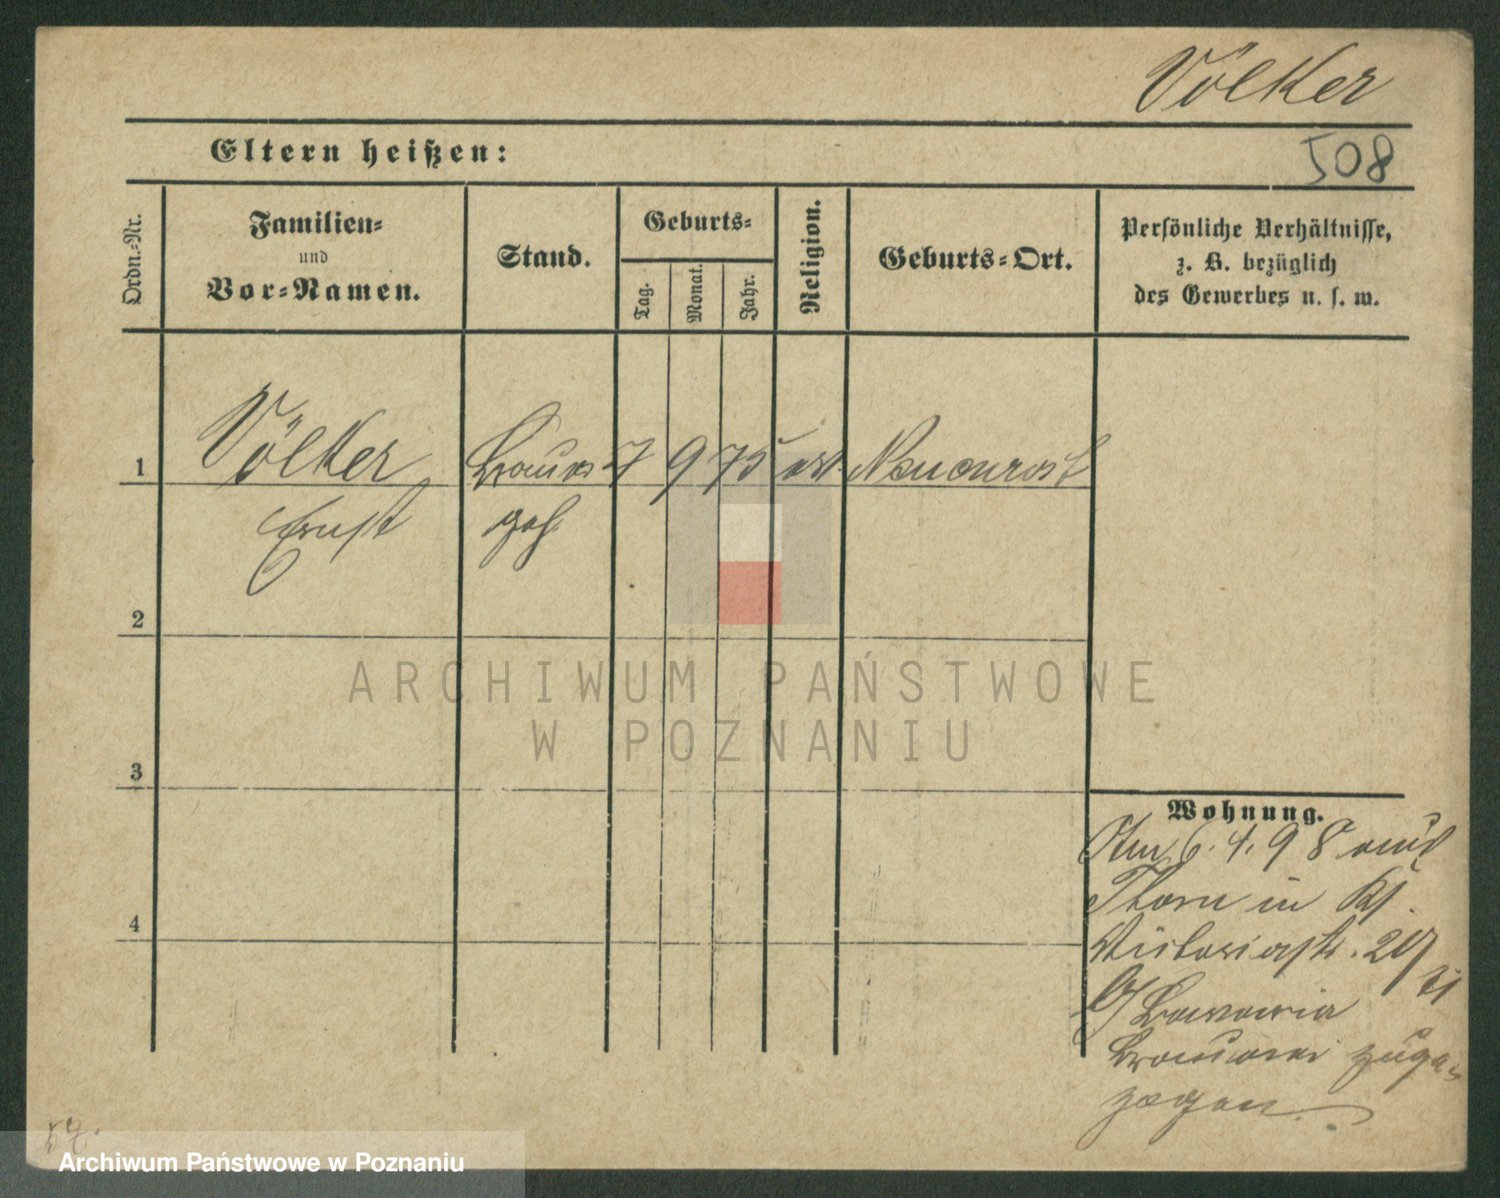 Völker
Eltern heißen:
508
Ordn.-Nr.
Familien-
und
Vor-Namen.
Stand.
Geburts-
Tag.
Monat.
Jahr.
Religion.
Geburts-Ort.
Persönliche Verhältnisse,
z. B. bezüglich
des Gewerbes u. s. w.
1 Völker Brauer 7 9 75 ev.
Ernst geh.
2
ARCHIWUM PAŃSTWOWE
W POZNANIU
3
Wohnung.
Am 6. 4. 98 aus
4
Thorn in
Victoriastr. 20
Bavaria
Brauerei zuge-
zogen.
Archiwum Państwowe w Poznaniu